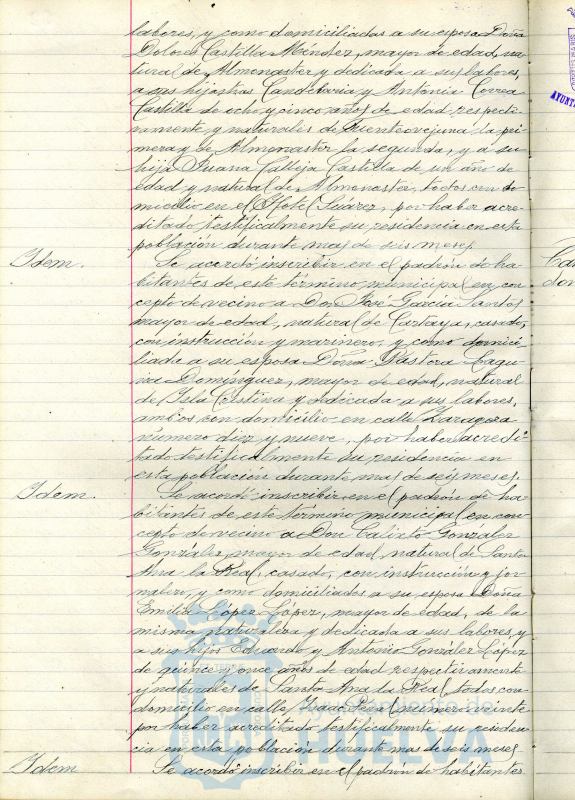 labores, y como domiciliadas a su esposa Doña
Dolores Castilla Méndez, mayor de edad, na-
tural de Almonaster y dedicada a sus labores,
a sus hijastras Candelaria y Antonia Correa
Castilla de ocho y cinco años de edad respecti-
vamente y naturales de Fuenteovejuna la pri-
mera y de Almonaster la segunda, y a su
hija Juana Calleja Castilla de un año de
edad y natural de Almonaster, todos con do-
micilio en el Hotel Suárez, por haber acre-
ditado testificalmente su residencia en esta
población durante mas de seis meses.
Idem. Se acordó inscribir en el padrón de ha-
bitantes de este término municipal en con-
cepto de vecino a Don José García Santos
mayor de edad, natural de Cartaya, casado,
con instrucción y marinero, y como domici-
liada a su esposa Doña Pastora
Domínguez, mayor de edad, natural
de Isla Cristina y dedicada a sus labores,
ambos con domicilio en calle Zaragoza
número diez y nueve, por haber acredi-
tado testificalmente su residencia en
esta población durante mas de seis meses.
Idem. Se acordó inscribir en el padrón de ha-
bitantes de este término municipal en con-
cepto de vecino a Don Calixto González
González, mayor de edad, natural de Santa
Ana la Real, casado, con instrucción y jor-
nalero, y como domiciliados a su esposa Doña
Emilia López López, mayor de edad, de la
misma naturaleza y dedicada a sus labores, y
a sus hijos Eduardo y Antonio González López
de quince y once años de edad respectivamente
y naturales de Santa Ana la Real, todos con
domicilio en calle Isaac Peral número veinte
por haber acreditado testificalmente su residen-
cia en esta población durante mas de seis meses.
Idem Se acordó inscribir en el padrón de habitantes
Ayuntamiento de
HUELVA